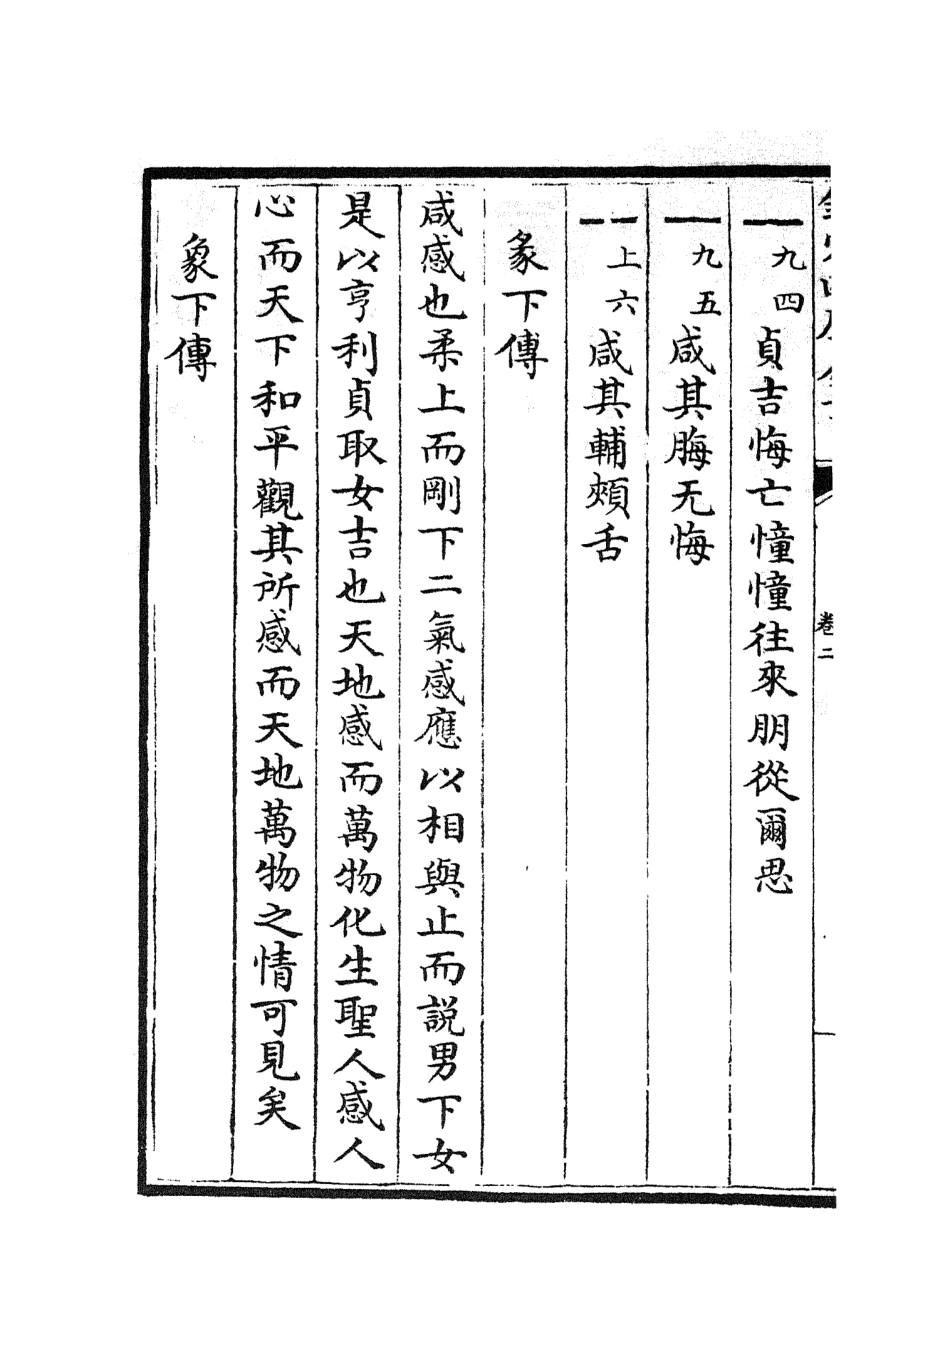 九四貞吉悔亡憧憧往來朋從爾思
九五咸其脢无悔
上六咸其輔頰舌
彖下傳
咸感也柔上而剛下二氣感應以相與止而説男下女
是以亨利貞取女吉也天地感而萬物化生聖人感人
心而天下和平觀其所感而天地萬物之情可見矣
象下傳
卷二